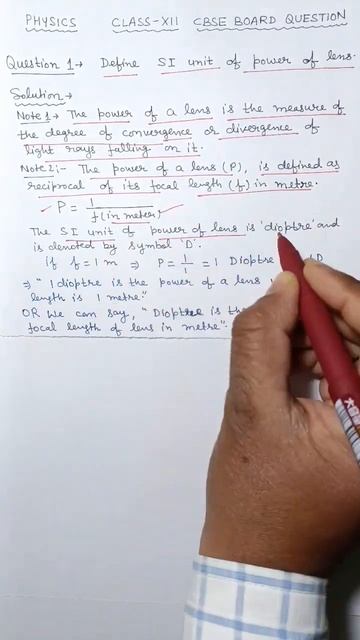 PHYSICS CLASS-XII CBSE BOARD QUESTION
Question 1→ Define SI unit of power of lens.
Solution→
Note 1→ The power of a lens is the measure of
the degree of convergence or divergence of
light rays falling on it.
Note2:- The power of a lens (P), is defined as
reciprocal of its focal length (f) in metre.
P = 1/f (in meter)
The SI unit of power of lens is 'dioptre' and
is denoted by symbol 'D'.
if f = 1 m ⇒ P = 1/1 = 1 Dioptre 1D
⇒ "1 dioptre is the power of a lens
length is 1 metre."
OR We can say, "Dioptre is the
focal length of lens in metre".